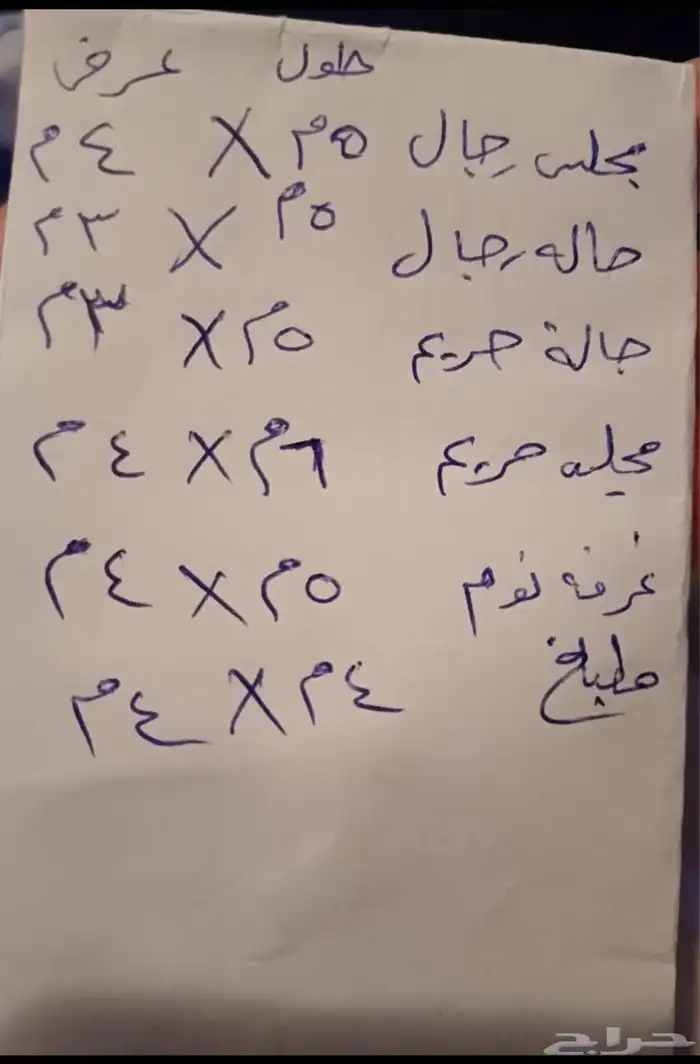 طول عرض
مجلس رجال ٥م X ٤م
صاله رجال ٥م X ٣م
صالة حريم ٥م X ٣م
مجلس حريم ٦م X ٤م
غرفه نوم ٥م X ٤م
مطبخ ٤م X ٤م
حراج